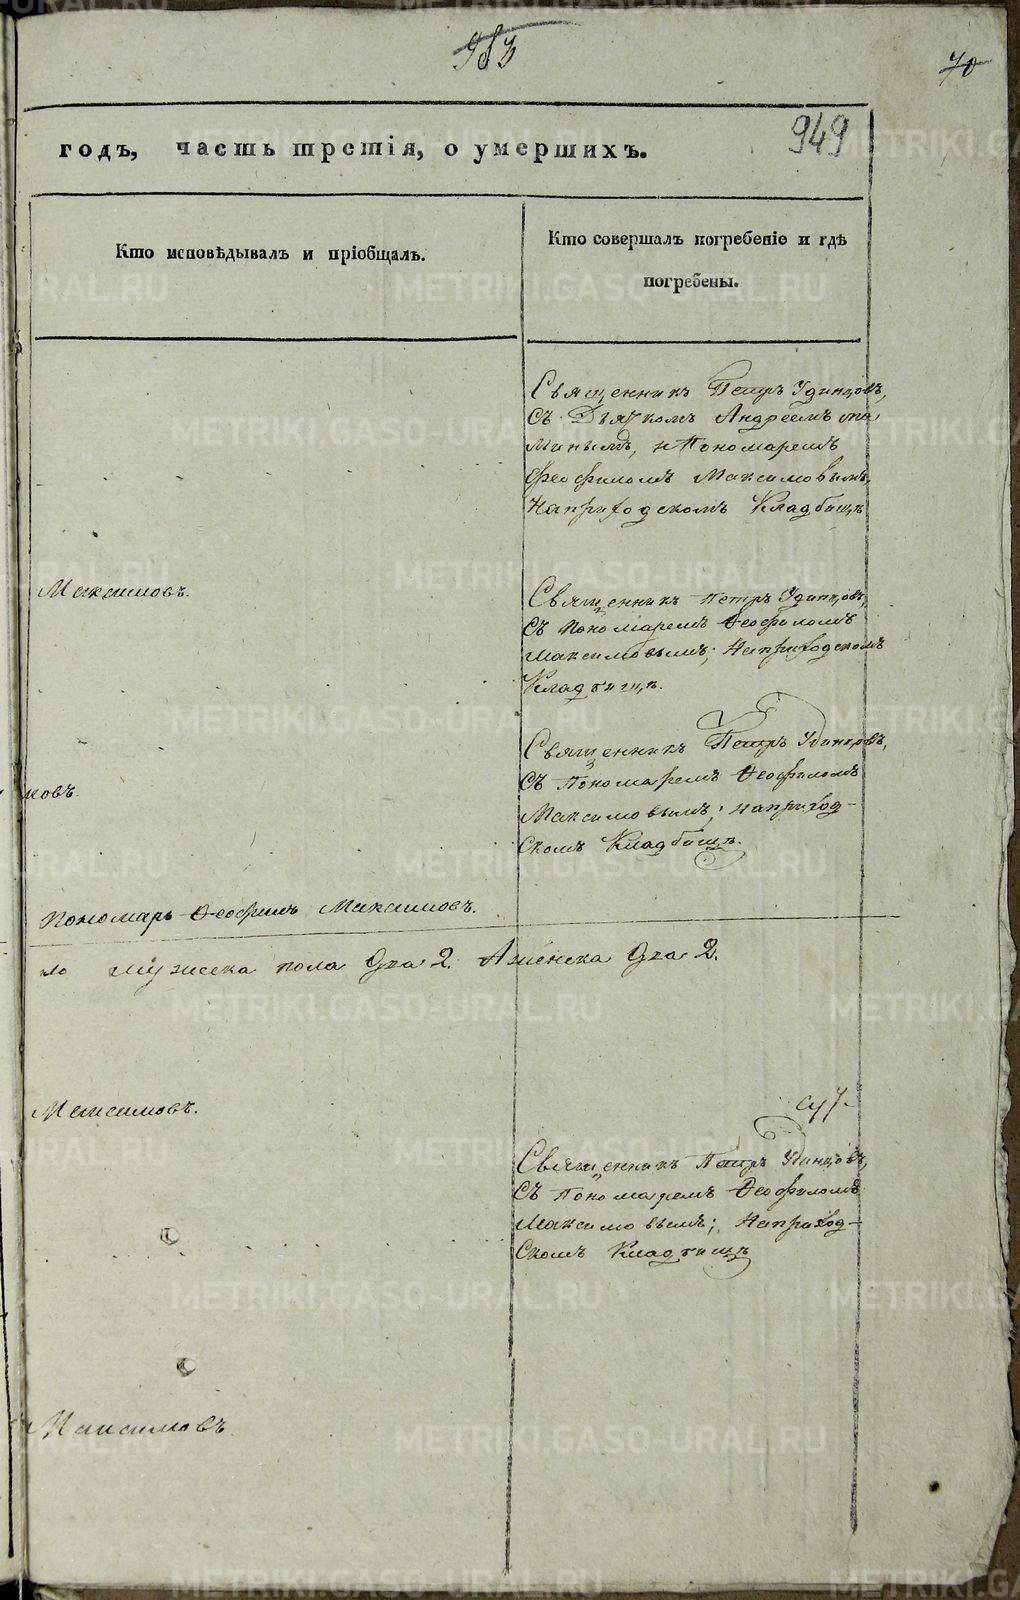 70
949
годъ, часть третія, о умершихъ.
Кто исповѣдывалъ и пріобщалъ.
Кто совершалъ погребеніе и гдѣ
погребены.
Священникъ Петръ Удинцовъ,
Съ Дьячкомъ Андреемъ
и Пономаремъ
Феофиломъ Максимовымъ,
На приходскомъ Кладбищѣ
Максимовъ.
Священникъ Петръ Удинцовъ,
Съ Пономаремъ Ѳеофиломъ
Максимовымъ; На приходскомъ
Кладбищѣ.
Священникъ Петръ Удинцовъ,
Съ Пономаремъ Ѳеофиломъ
Максимовымъ; на приход-
скомъ Кладбищѣ.
мовъ.
Пономарь Ѳеофилъ Максимовъ.
ло мужеска пола два 2. А женска два 2.
Максимовъ.
Священникъ Петръ Удинцовъ,
Съ Пономаремъ Ѳеофиломъ
Максимовымъ; На приход-
скомъ Кладбищѣ
Максимовъ
METRIKI.GASO-URAL.RU